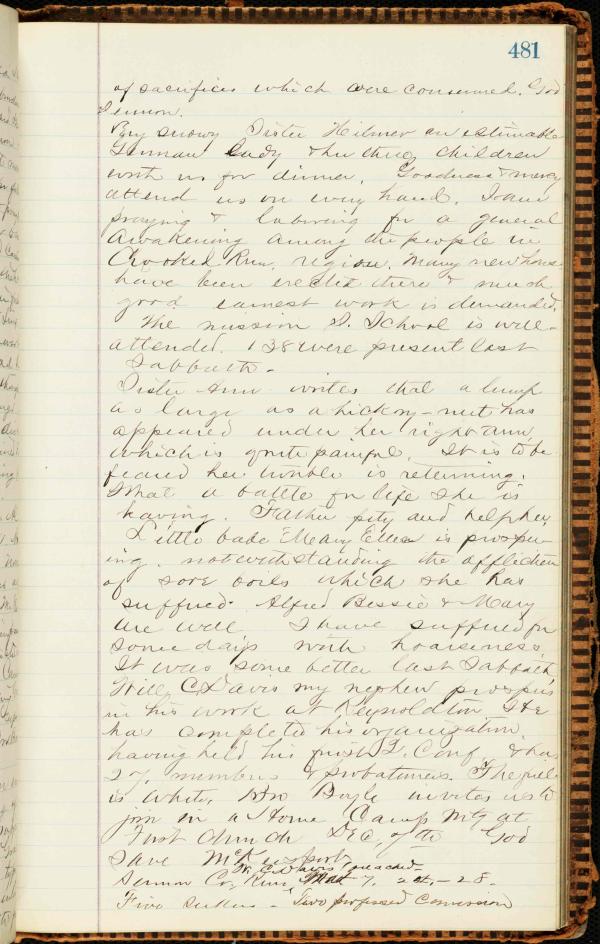 481
of sacrifices which were consumed. God
Sermon.
Big snowy Sister Hilmer an estimable
German Lady & her three children
with us for dinner. Goodness & mercy
attend us on every hand. I am
praying & laboring for a general
Awakening among the people in
Crooked Run, region. Many new houses
have been erected there & much
good earnest work is demanded.
The mission S. School is well-
attended. 138 were present last
Sabbath -
Sister Ann writes that a lump
as large as a hickory-nut has
appeared under her right arm,
which is quite painful. It is to be
feared her trouble is returning.
What a battle for life she is
having. Father pity and help her,
Little babe Mary Ellen is prosper-
ing. notwithstanding the affliction
of sore boils which she has
suffered. Alfred Bessie & Mary
are well I have suffered for
some days with hoarseness.
It was some better last Sabbath.
Will C. Davis my nephew prospers
in his work at Reynoldton &c
has completed his organization,
having held his first Q. Conf & has
27, members & probationers. The field
is white, Bro Boyle invites us to
join in a Home Camp Mtg at
First Church DEC, 9th God
Save McKeesport
W. C. Davis preached -
Sermon Co, Run, Matt 7, 24, - 28.
Five seekers - Two professed Conversion